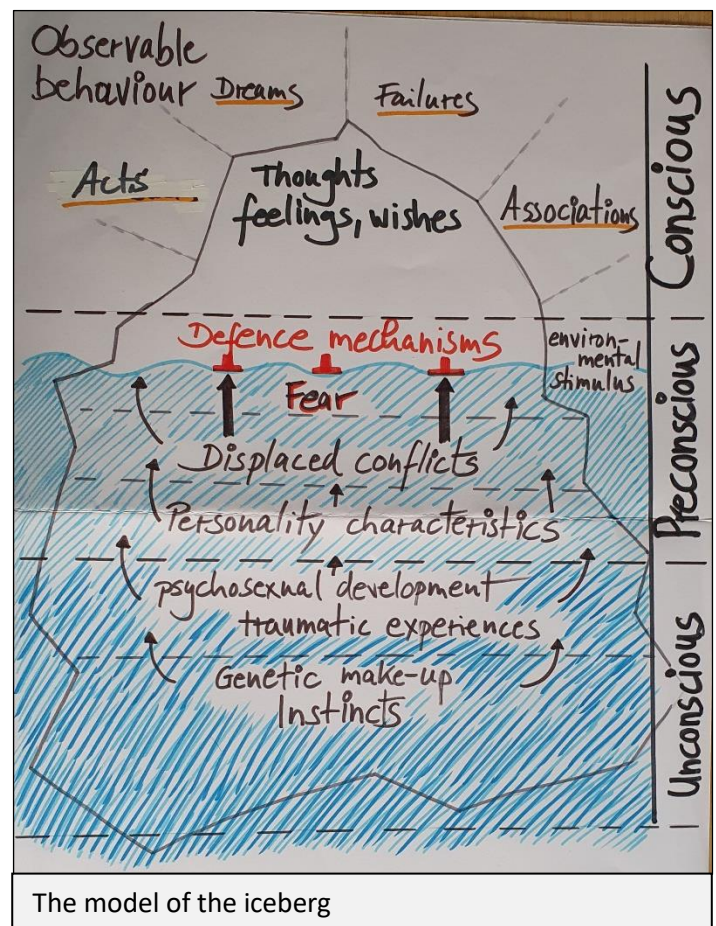 Observable
behaviour
Dreams
Failures
Acts
Thoughts
feelings, wishes
Associations
Conscious
Defence mechanisms
environ-
mental
stimulus
Fear
Displaced conflicts
Personality characteristics
Preconscious
psychosexual development
traumatic experiences
Genetic make-up
Instincts
Unconscious
The model of the iceberg